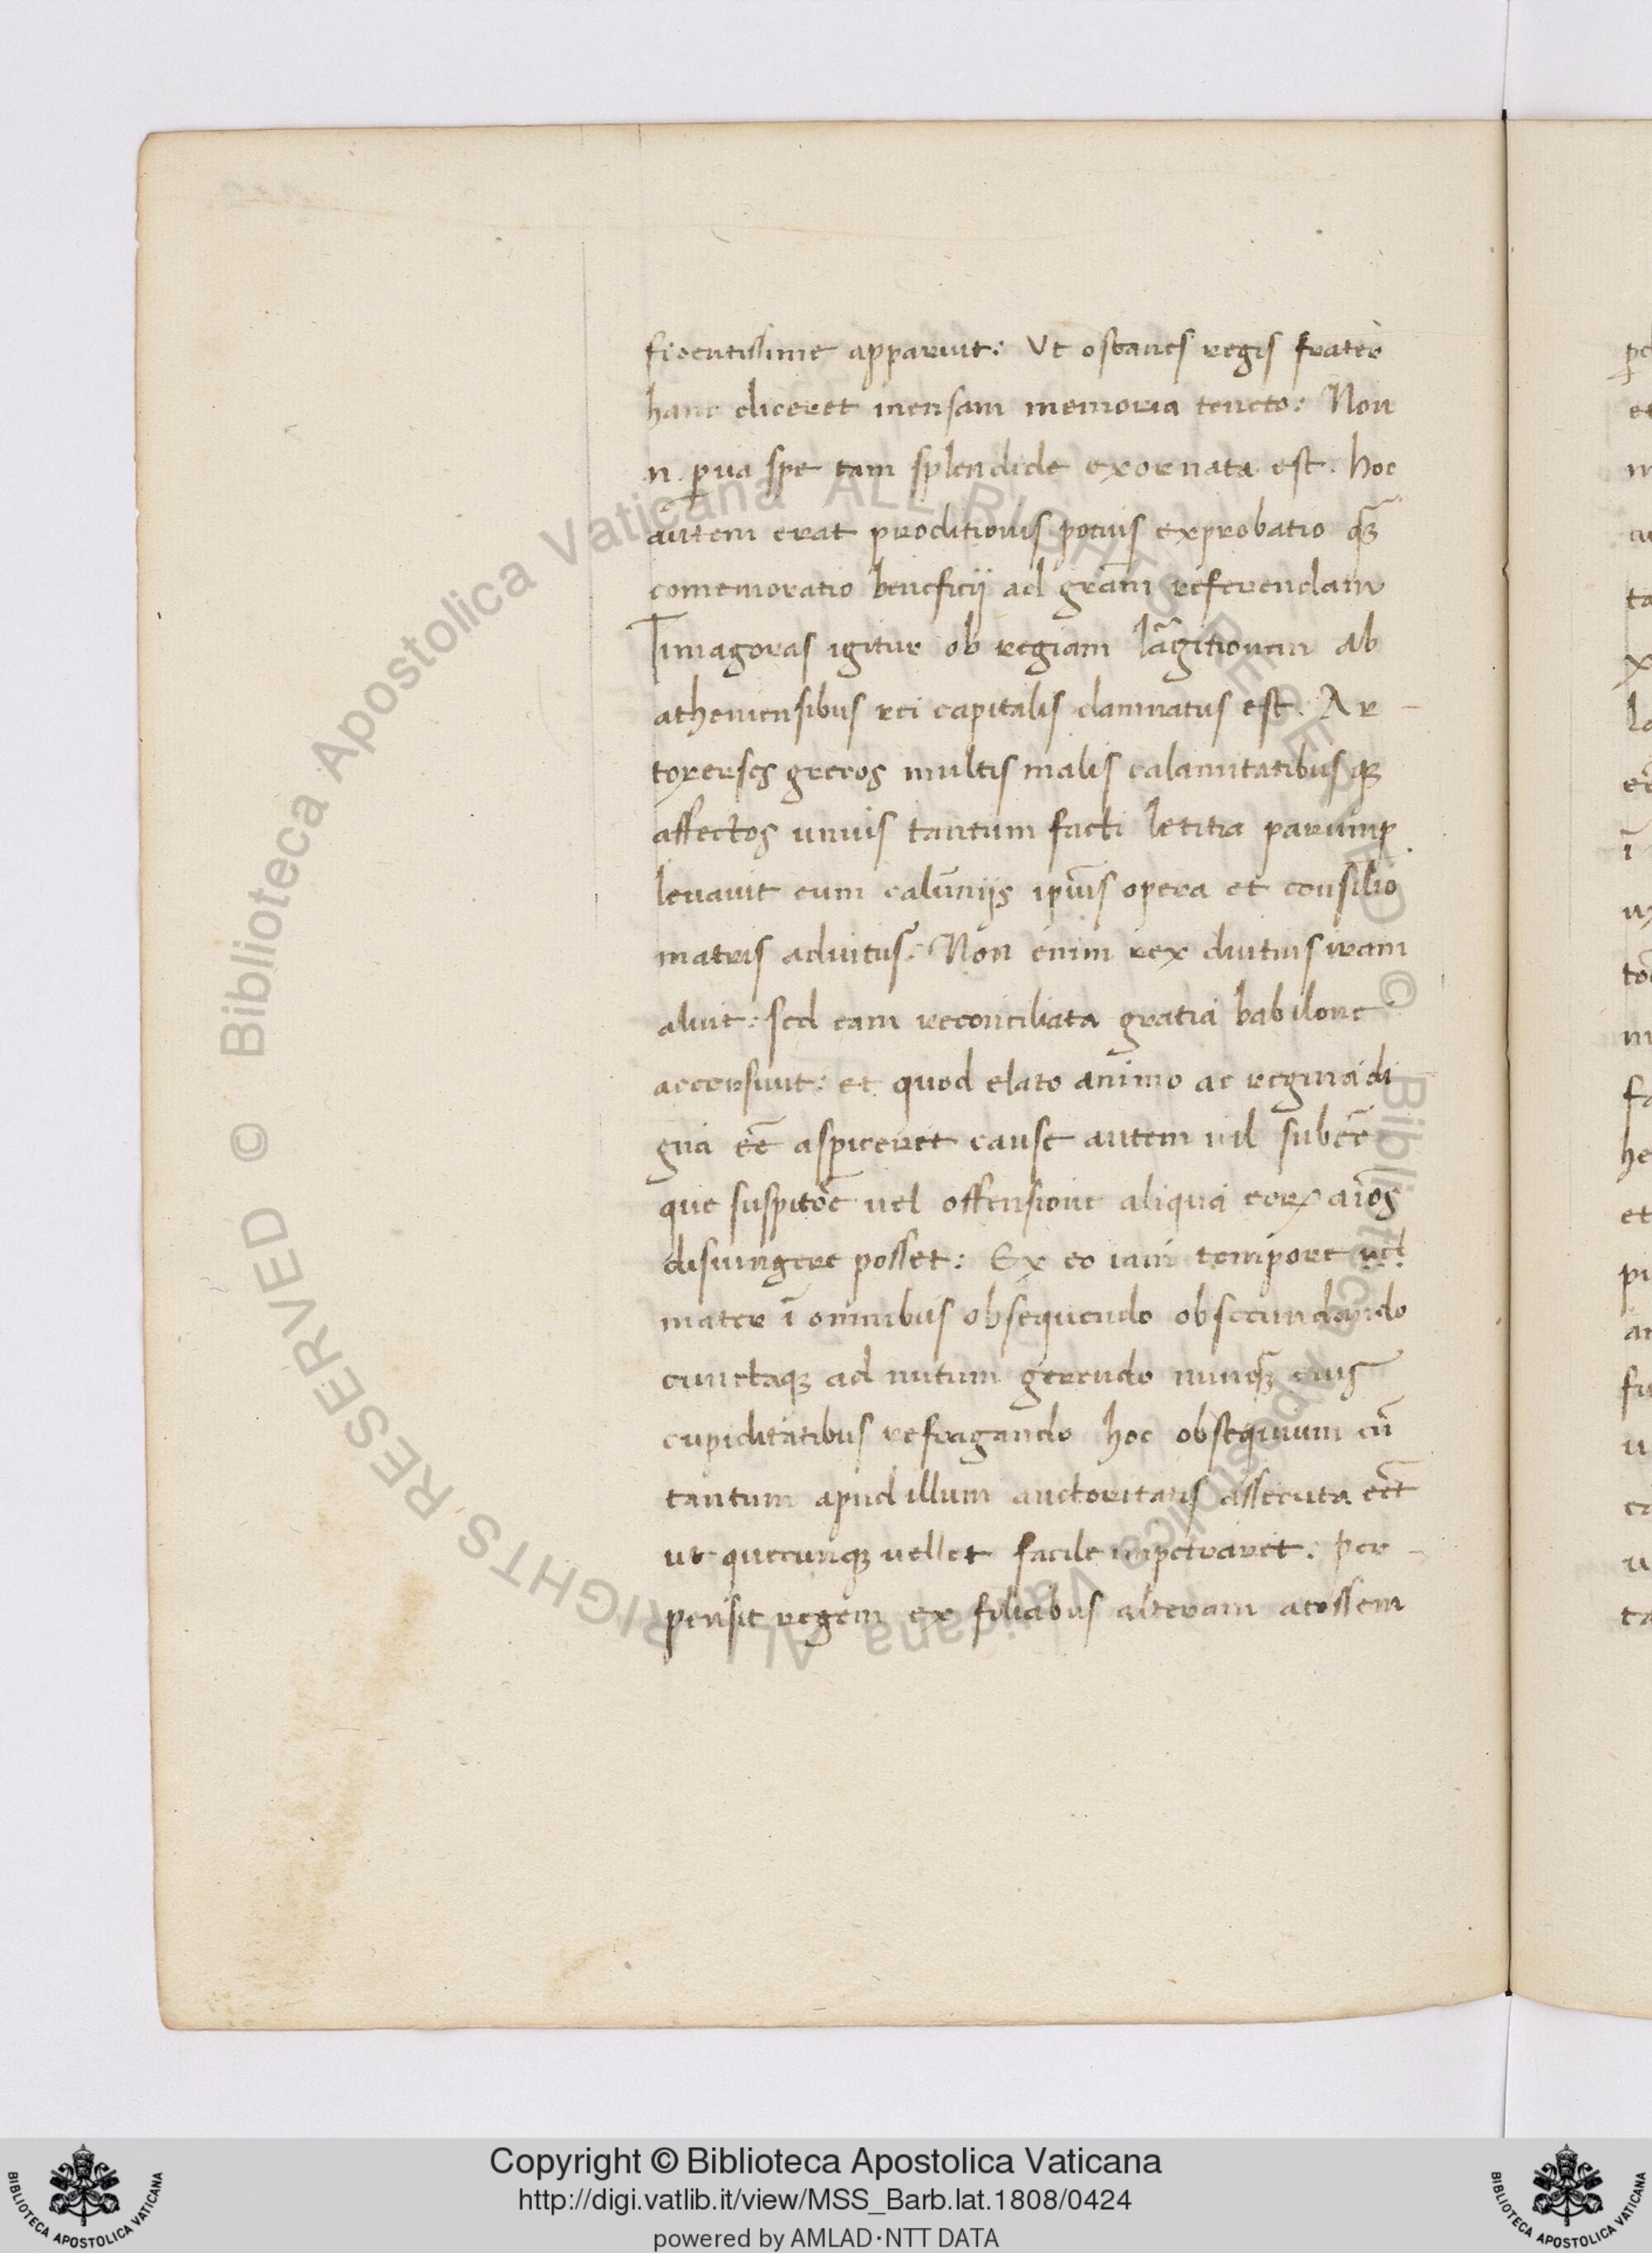 ficentissime apparuit: Ut ostanes regis frater
hanc diceret mensam memoria teneto: Non
n. ꝑua spe tam splendide exornata est. hoc
autem erat proditionis potius exprobatio qȝ̃
comemoratio beneficij ad gram̃ referendam
Timagoras igitur ob regiam lãgitionem ab
atheniensibus rei capitalis damnatus est. Ar-
toxerses grecos multis malis calamitatibusqȝ
affectos unius tantum facti letitia parump
leuauit cum calũnijs ipĩus opera et consilio
matris aduitus: Non enim rex diutius iram
aluit: sed eam reconciliata gratia babilone
accersiuit: et quod elato animo ac regina di
gna eẽ aspiceret cause autem nil subeẽ
que suspitõe vel offensione aliqua eorꝝ aĩos
disiungere posset: Ex eo iam tempore uel
mater ĩ omnibus obsequendo obsecundando
cunctaqȝ ad nutum gerendo nunqȝ̃ eius
cupiditatibus refragando hoc obsequium cũ
tantum apud illum auctoritatis assecuta eẽt
ut quecunqȝ vellet facile impetraret: per-
pensit regem ex filiabus alteram atossem
© Biblioteca Apostolica Vaticana ALL RIGHTS RESERVED © Biblioteca Apostolica Vaticana ALL RIGHTS RESERVED
BIBLIOTECA APOSTOLICA VATICANA
Copyright © Biblioteca Apostolica Vaticana
http://digi.vatlib.it/view/MSS_Barb.lat.1808/0424
powered by AMLAD·NTT DATA
BIBLIOTECA APOSTOLICA VATICANA